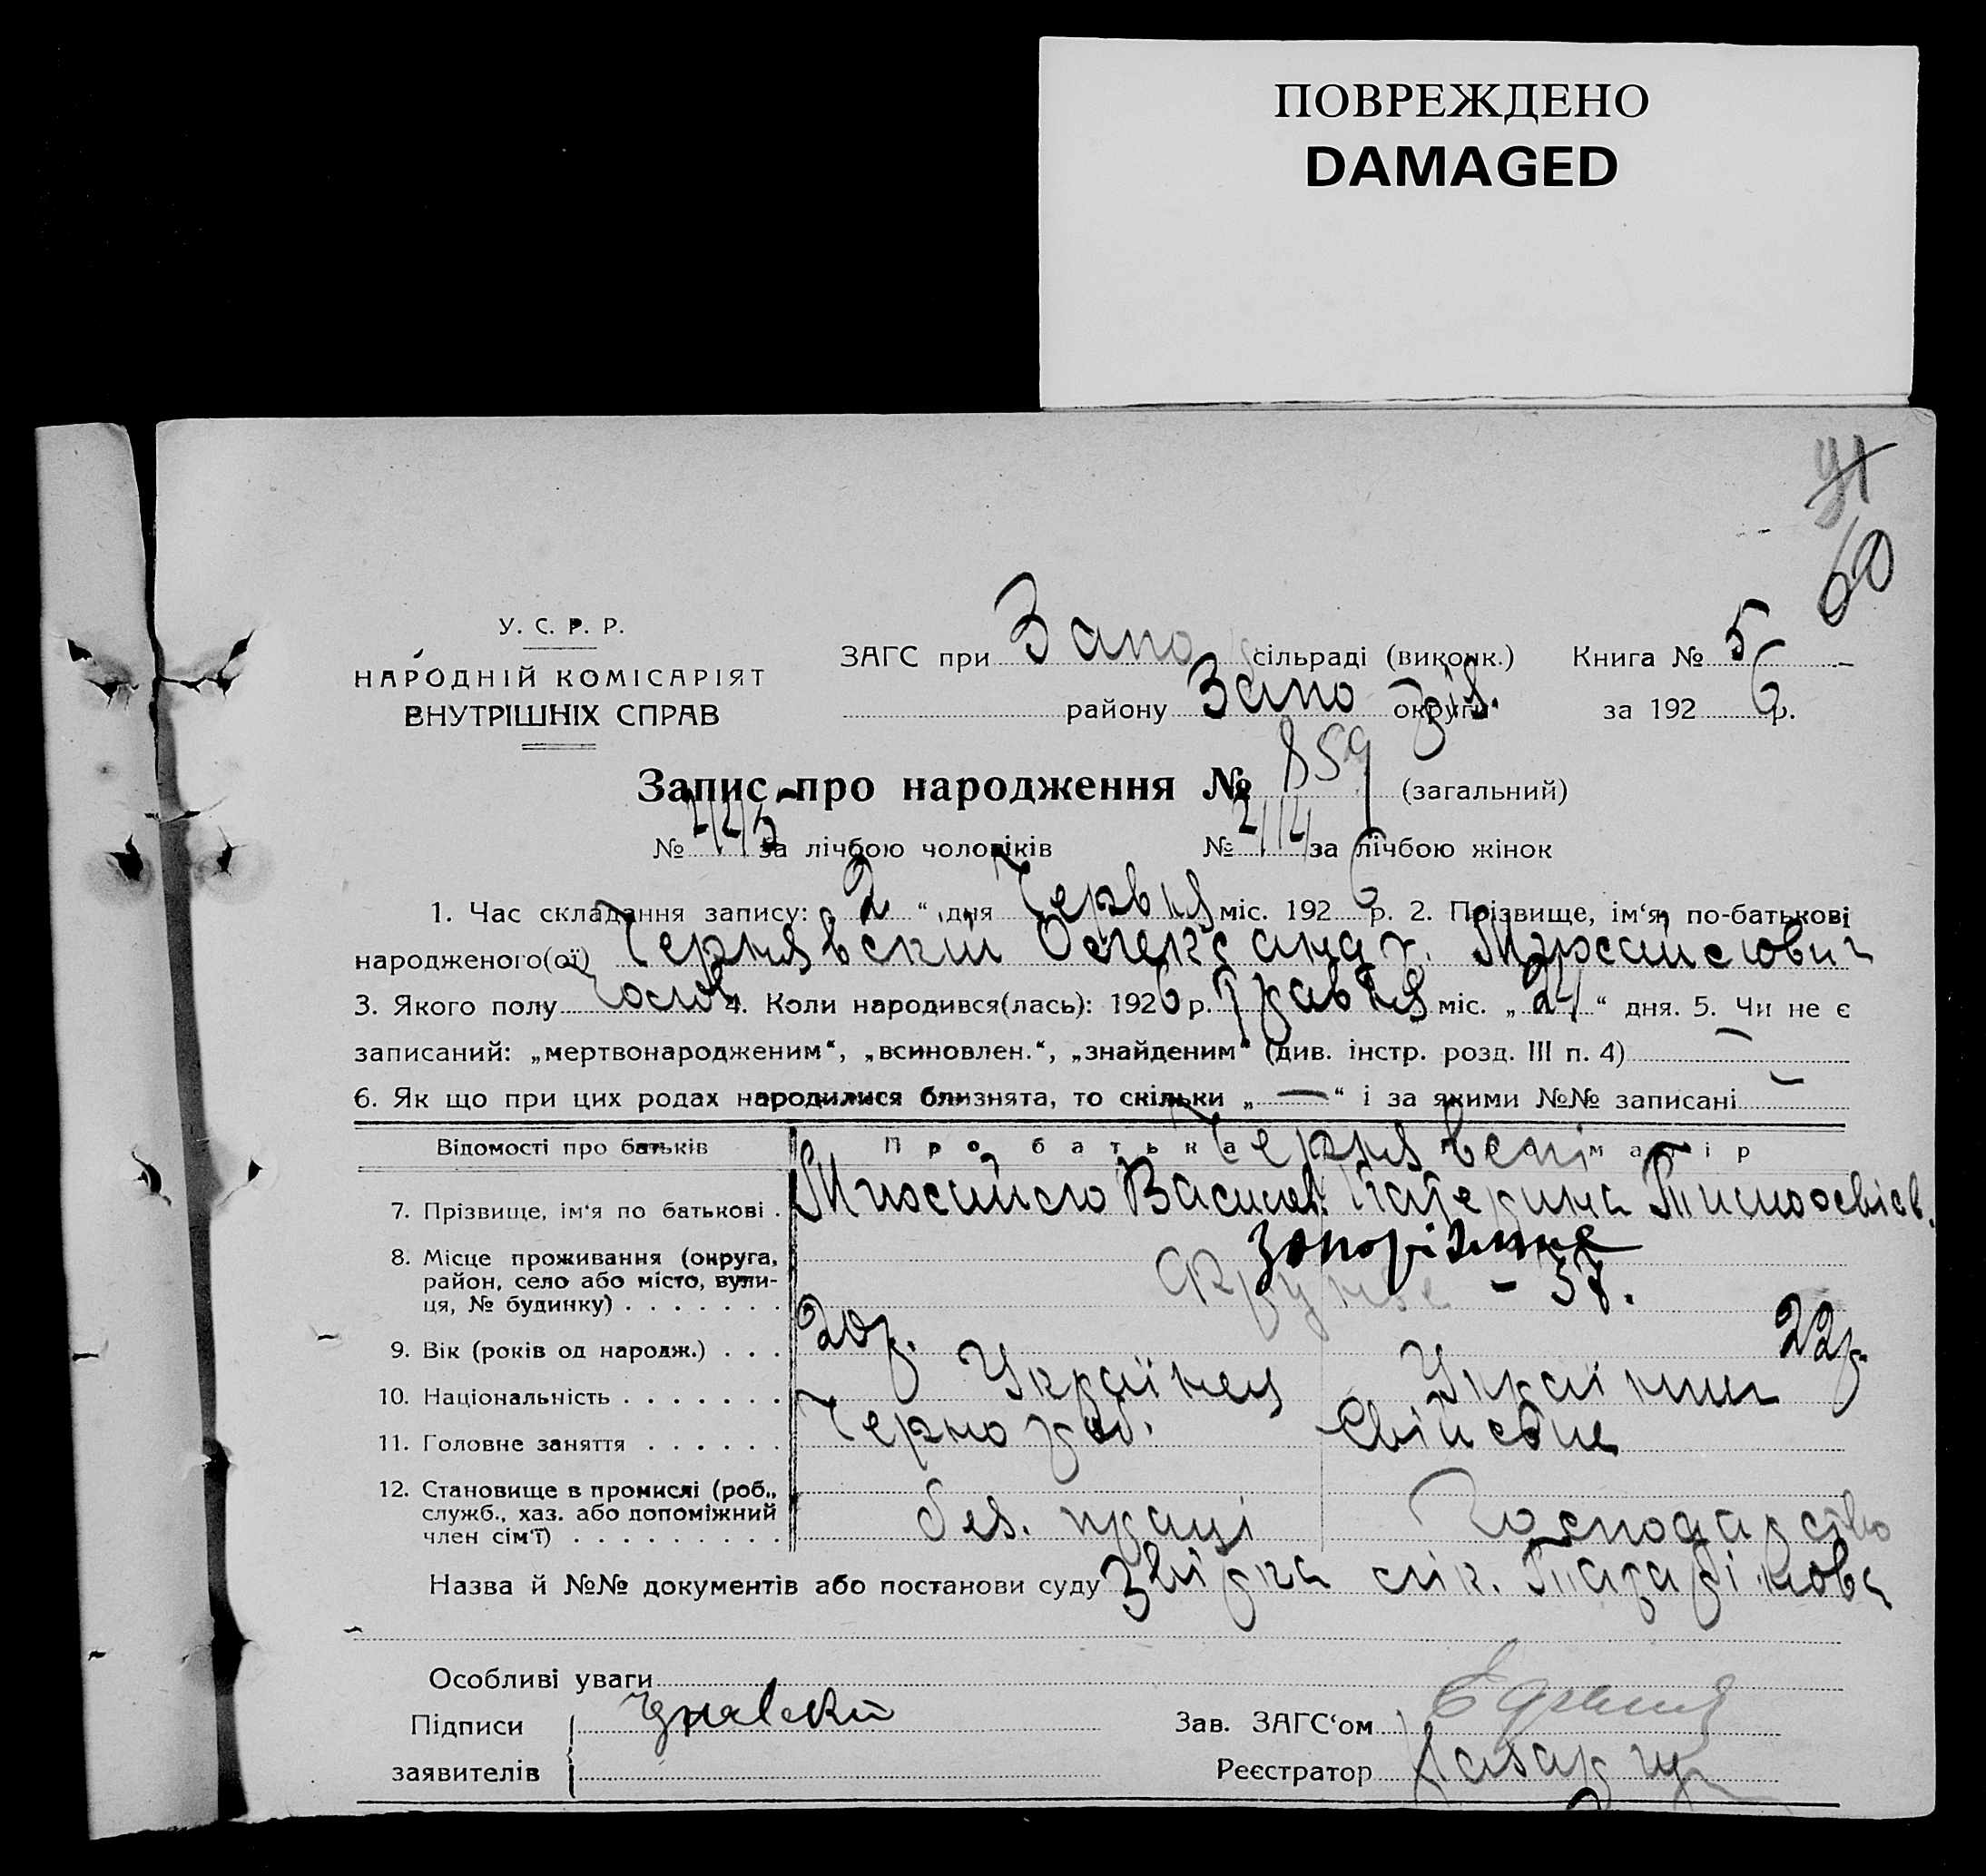 ПОВРЕЖДЕНО
DAMAGED
91
60
У. С. Р. Р.
НАРОДНІЙ КОМІСАРІЯТ
ВНУТРІШНІХ СПРАВ
ЗАГС при Запо сільраді (виконк.) Книга № 5
району Запо округи за 1926 р.
Запис про народження № 859 (загальний)
№ за лічбою чоловіків № за лічбою жінок
1. Час складання запису: „2“ дня Червня міс. 1926 р. 2. Прізвище, ім‘я, по-батькові
народженого(ої) Чернявський Олександр. Михайлович
3. Якого полу Чолов 4. Коли народився(лась): 1926 р. Травня міс. „24“ дня. 5. Чи не є
записаний: „мертвонародженим“, „всиновлен.“, „знайденим“ (див. інстр. розд. III п. 4) —
6. Як що при цих родах народилися близнята, то скільки „—“ і за якими №№ записані —
Відомості про батьків Про батька Чернявскі матір
7. Прізвище, ім‘я по батькові . Михайло Васильов. Катерина Тимофеівн.
8. Місце проживання (округа, район, село або місто, вули-ця, № будинку) . . . . . . . Запоріжжя
Фрунзе - 37.
9. Вік (років од народж.) . . . 20р. 22р.
10. Національність . . . . . . . Українец Українка
11. Головне заняття . . . . . . Чернороб. Свійське
12. Становище в промислі (роб., служб., хаз. або допоміжний член сім‘ї) . . . . . . . . . без. праці Господарство
Назва й №№ документів або постанови суду лік.
Особливі уваги
Підписи Зав. ЗАГС‘ом
заявителів Реєстратор